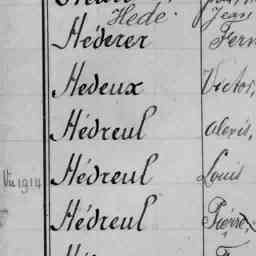 Hede. Jean
Héderer Fern
Hedeux Victor,
Hédreul Alexis,
Vu 1914 Hédreul Louis
Hédreul Pierre,